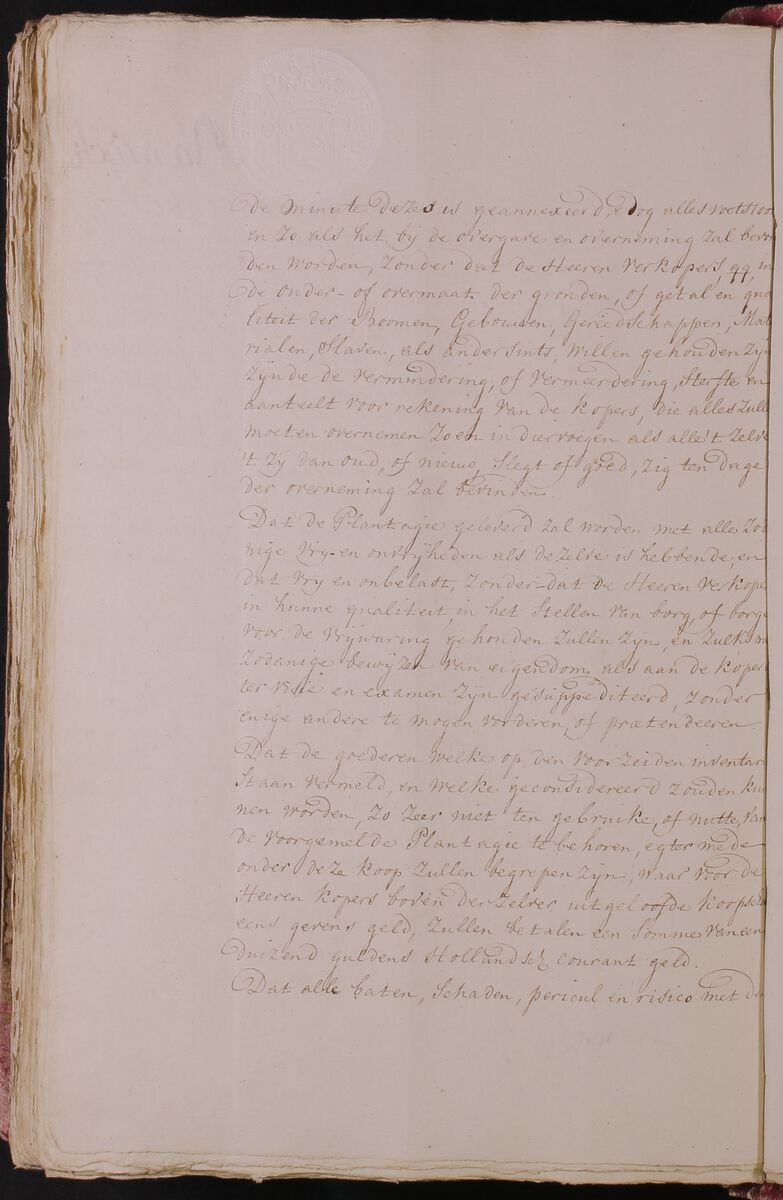 de minute dezes is geannexeerd, dog alles voetstoo
en zo als het bij de overgave en overneming zal bevon
den worden, zonder dat de Heeren verkopers, qq, in
de onder- of overmaat der gronden, of getal en qua
liteit der Boomen, Gebouwen, Gereedschappen, Mate
rialen, Slaven, als andersints, willen gehouden zyn
zynde de vermindering, of vermeerdering, sterfte en
aanteelt voor rekening van de kopers, die alles zulle
moeten overnemen zo en in diervoegen als alle 't zelve
't zy dan oud, of nieuw, slegt of goed, zig ten dage
der overneming zal bevinden.
Dat de Plantagie geleverd zal worden met alle zoda
nige vry- en onvrijheden als dezelve is hebbende, en
dat vry en onbelast, zonder dat de Heeren verkope
in hunne qualiteit, in het stellen van borg, of borge
voor de vrijwaring gehouden zullen zyn, en zulks m
zodanige bewyzen van eigendom als aan de koper
ter visie en examen zyn gesuppediteerd, zonder
enige andere te mogen vorderen, of prætendeeren.
Dat de goederen welke op den voorzeiden inventari
staan vermeld, en welke geconsidereerd zouden kun
nen worden, zo zeer niet ten gebruike, of nutte, van
de voorgemelde Plantagie te behoren, egter mede
onder deze koop zullen begrepen zyn, waar voor de
Heeren kopers boven derzelver uitgeloofde koopscha
eens gevens geld, zullen betalen een somme van een
duizend guldens Hollandsch courant geld.
Dat alle baten, schaden, pericul en risico met de